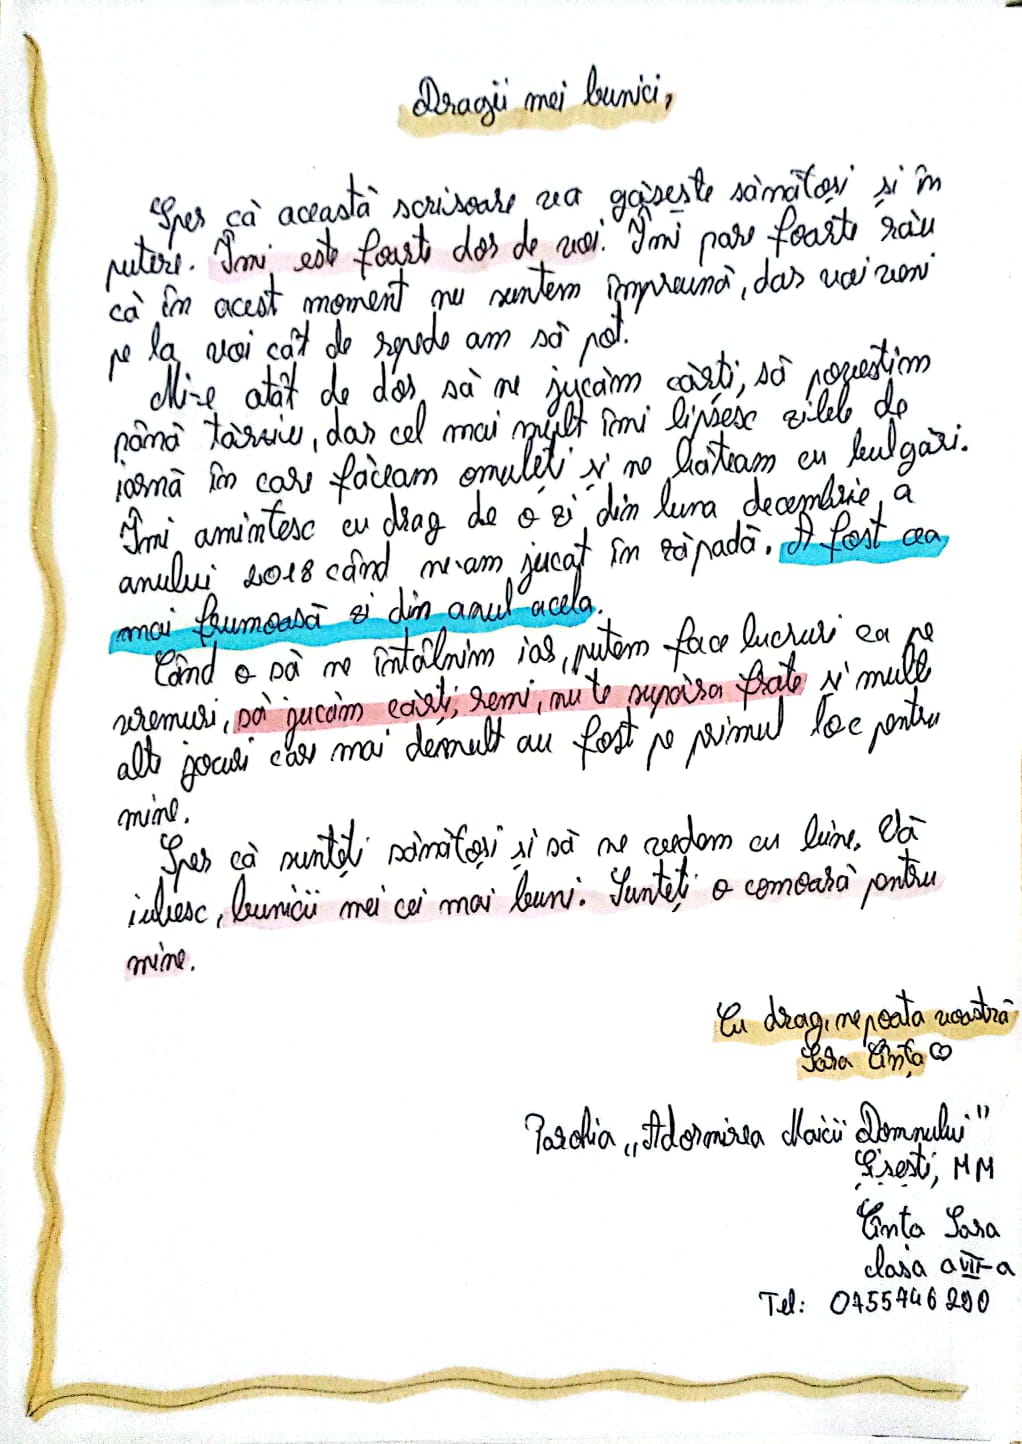 Dragii mei bunici,
Sper că această scrisoare va găsește sămătoși și în
putere. Îmi este foarte dor de voi. Îmi pare foarte rău
că în acest moment nu suntem împreună, dar voi veni
pe la voi cât de repede am să pot.
Mi-e atât de dor să ne jucăm cărți, să povestim
până târziu, dar cel mai mult îmi lipsesc zilele de
iarnă în care făceam omuleți și ne băteam cu bulgări.
Îmi amintesc cu drag de o zi din luna decembrie, a
anului 2018 când ne-am jucat în zăpadă. A fost cea
mai frumoasă zi din anul acela.
Când o să ne întâlnim iar, putem face lucruri ca pe
vremuri, să jucăm cărți, remi, nu te supăra frate și multe
alte jocuri care mai demult au fost pe primul loc pentru
mine.
Sper că sunteți sămătoși și să ne vedem cu bine. Vă
iubesc, bunicii mei cei mai buni. Sunteți o comoară pentru
mine.
Cu drag, nepoata voastră
Sara Țînța ♡
Parohia „Adormirea Maicii Domnului”
MM
Sara
clasa a VII-a
Tel: 0755746290